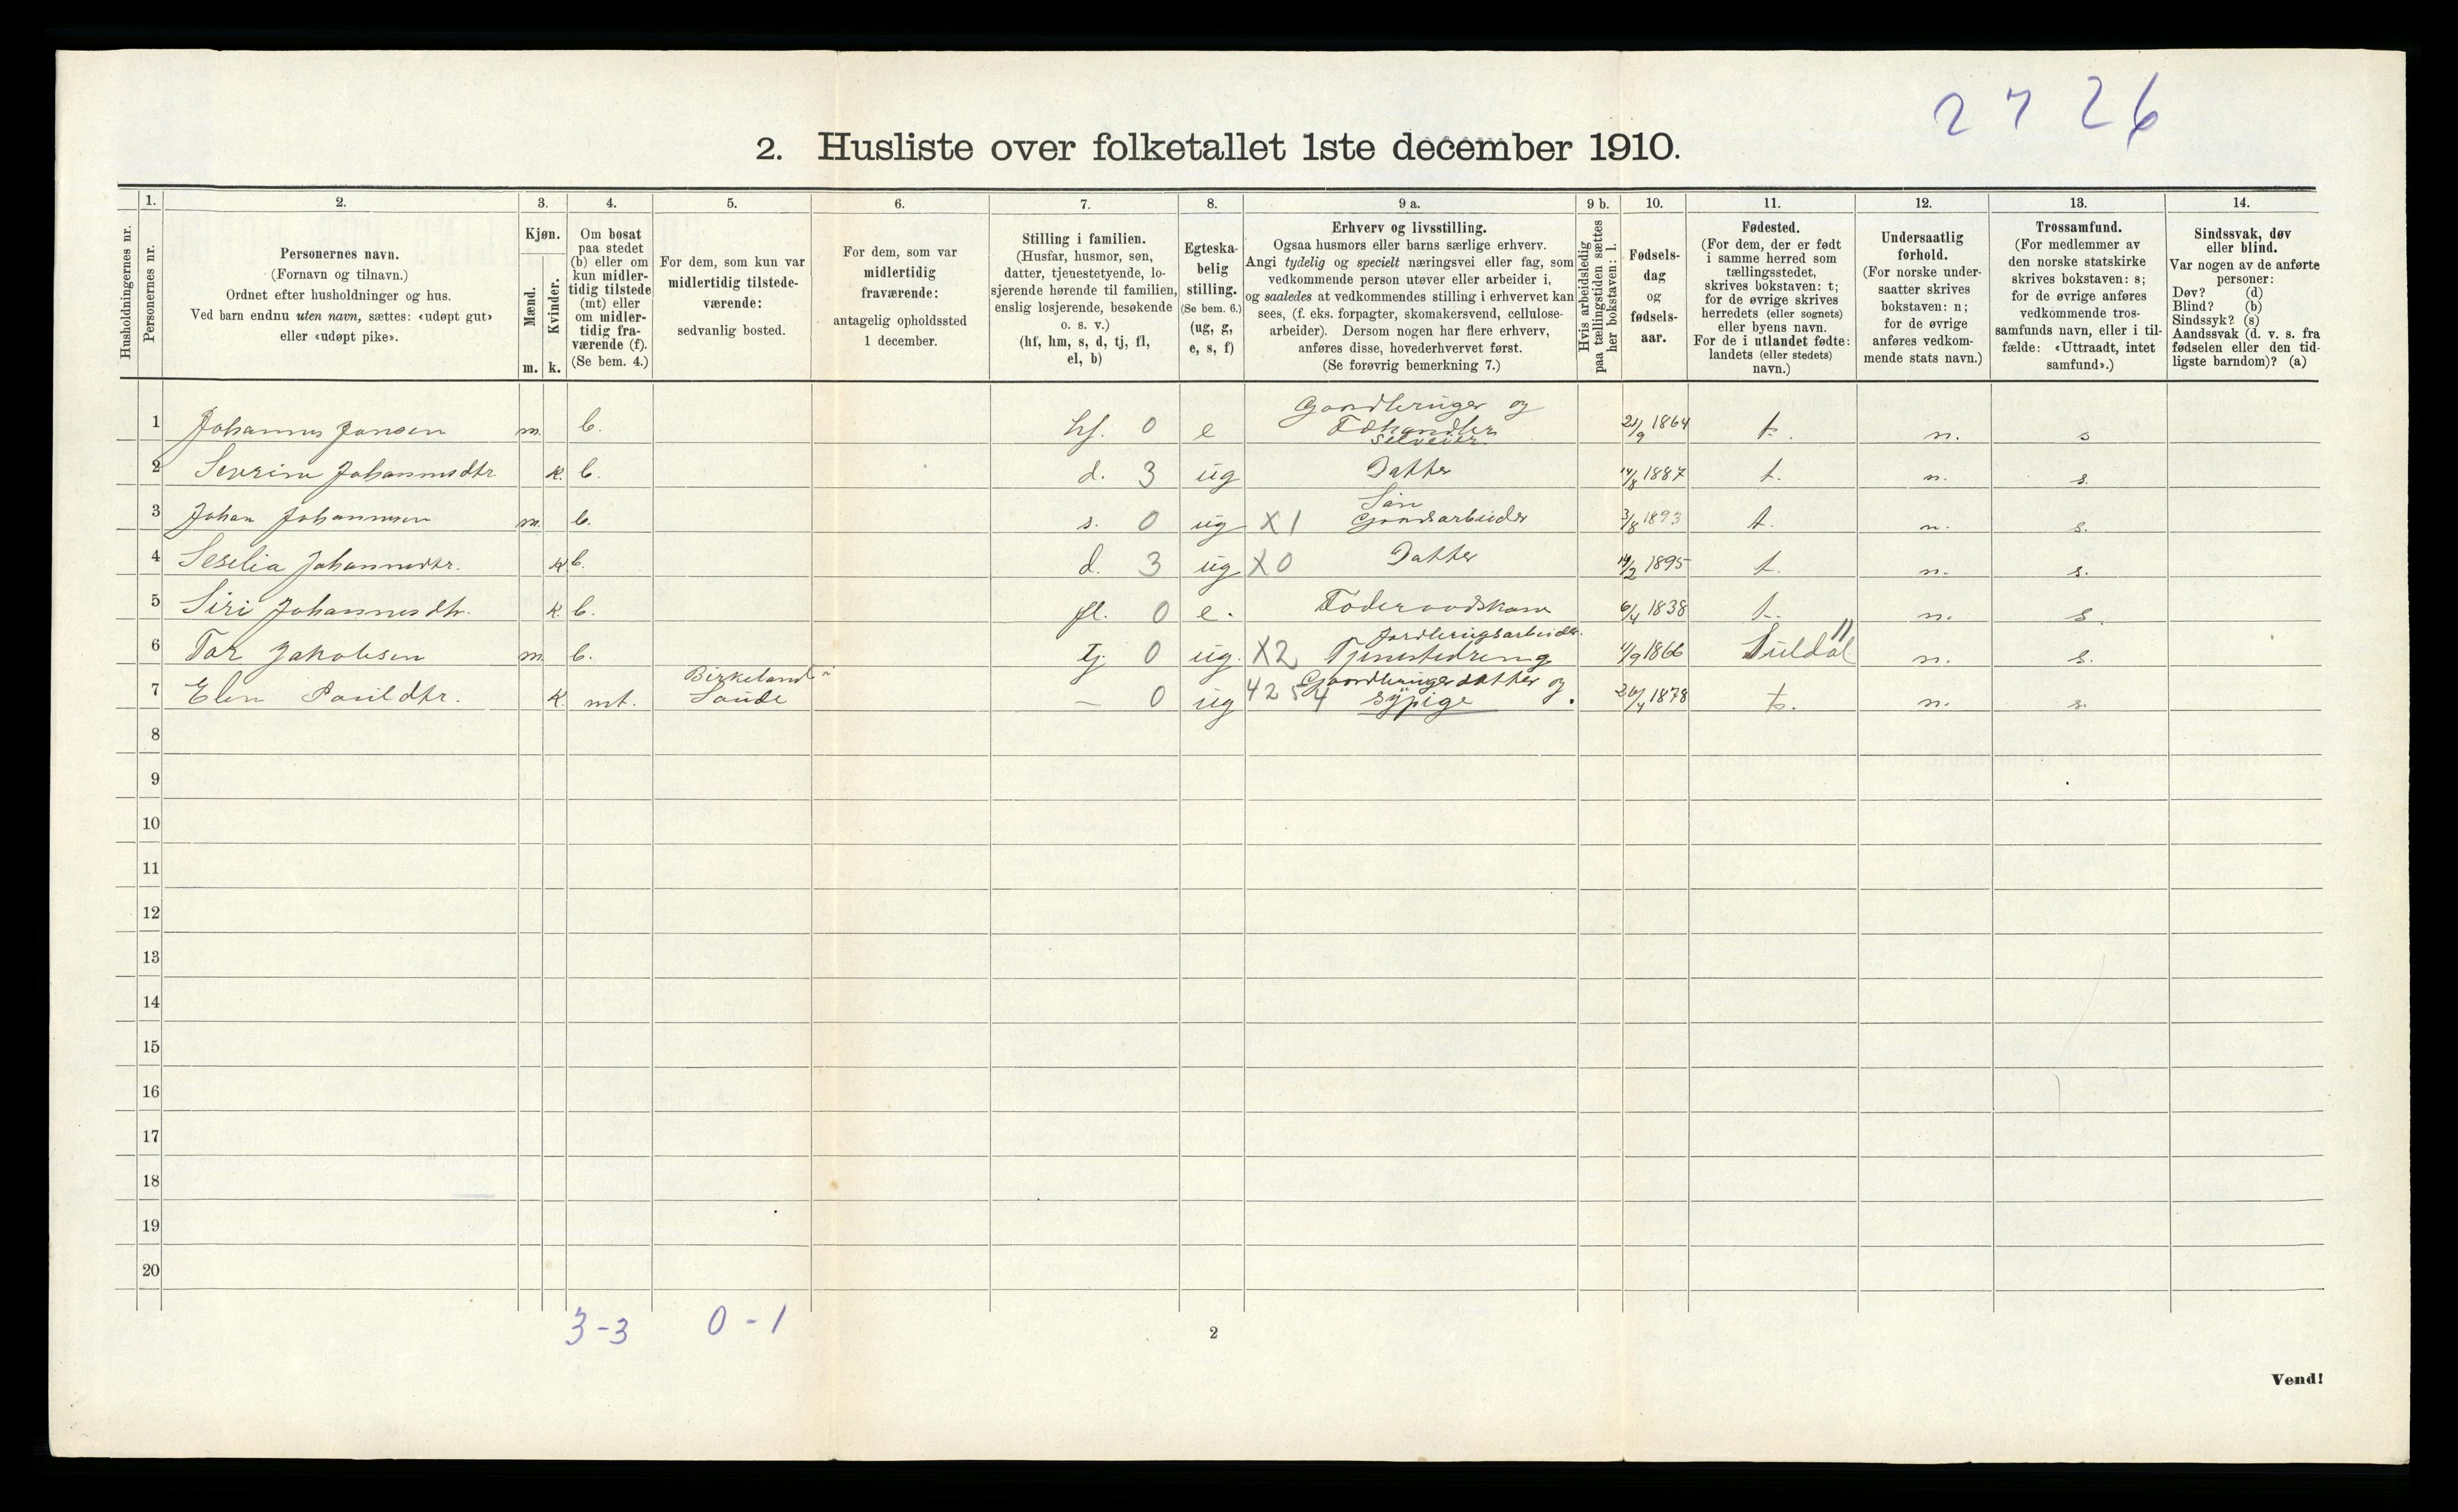 2 7 26
2. Husliste over folketallet 1ste december 1910.
Husholdningernes nr.
1.
Personernes nr.
2.
Personernes navn.
(Fornavn og tilnavn.)
Ordnet efter husholdninger og hus.
Ved barn endnu uten navn, sættes: «udøpt gut»
eller «udøpt pike».
3.
Kjøn.
Mænd.
Kvinder.
m. k.
4.
Om bosat
paa stedet
(b) eller om
kun midler-
tidig tilstede
(mt) eller
om midler-
tidig fra-
værende (f).
(Se bem. 4.)
5.
For dem, som kun var
midlertidig tilstede-
værende:
sedvanlig bosted.
6.
For dem, som var
midlertidig
fraværende:
antagelig opholdssted
1 december.
7.
Stilling i familien.
(Husfar, husmor, søn,
datter, tjenestetyende, lo-
sjerende hørende til familien,
enslig losjerende, besøkende
o. s. v.)
(hf, hm, s, d, tj, fl,
el, b)
8.
Egteska-
belig
stilling.
(Se bem. 6.)
(ug, g,
e, s, f)
9 a.
Erhverv og livsstilling.
Ogsaa husmors eller barns særlige erhverv.
Angi tydelig og specielt næringsvei eller fag, som
vedkommende person utøver eller arbeider i,
og saaledes at vedkommendes stilling i erhvervet kan
sees, (f. eks. forpagter, skomakersvend, cellulose-
arbeider). Dersom nogen har flere erhverv,
anføres disse, hovederhvervet først.
(Se forøvrig bemerkning 7.)
9 b.
Hvis arbeidsledig
paa tællingstiden sættes
her bokstaven: l.
10.
Fødsels-
dag
og
fødsels-
aar.
11.
Fødested.
(For dem, der er født
i samme herred som
tællingsstedet,
skrives bokstaven: t;
for de øvrige skrives
herredets (eller sognets)
eller byens navn.
For de i utlandet fødte:
landets (eller stedets)
navn.)
12.
Undersaatlig
forhold.
(For norske under-
saatter skrives
bokstaven: n;
for de øvrige
anføres vedkom-
mende stats navn.)
13.
Trossamfund.
(For medlemmer av
den norske statskirke
skrives bokstaven: s;
for de øvrige anføres
vedkommende tros-
samfunds navn, eller i til-
fælde: «Uttraadt, intet
samfund».)
14.
Sindssvak, døv
eller blind.
Var nogen av de anførte
personer:
Døv? (d)
Blind? (b)
Sindssyk? (s)
Aandssvak (d. v. s. fra
fødselen eller den tid-
ligste barndom)? (a)
Gaardbruger og
1 Johannes Jonsen m. b. hf. 0 e Fæhandler 21/9 1864 t. n. s
Selveier
2 Severine Johannesdtr. k. b. d. 3 ug Datter 14/8 1887 t. n. s.
Søn
3 Johan Johannesen m. b. s. 0 ug X1 Gaardsarbeider 3/8 1893 t. n. s.
4 Seselia Johannesdtr. k b. d. 3 ug X0 Datter 1895 t. n. s.
5 Siri Johannesdtr. k. b. fl. 0 e. Føderaadskone 6/4 1838 t. n. s.
Jordbrugsarbeider.
6 Tor Jakobsen m. b. tj 0 ug. X2 Tjenestedreng 1/9 1866 Suldal 11 n. s.
Birkeland i Gaardbrugerdatter og
7 Elen Pauldtr. k. mt. Saude — 0 ug 4254 sypige. 26/4 1878 t. n. s.
8
9
10
11
12
13
14
15
16
17
18
19
20
3-3 0-1
2
Vend!